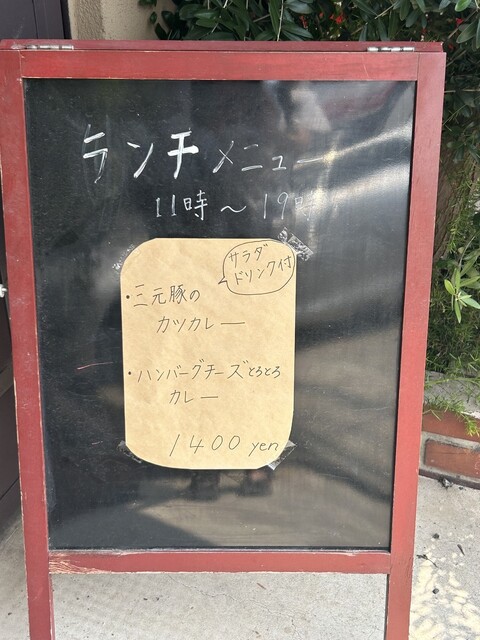 ランチメニュー
11時〜19時
サラダ
ドリンク付
・三元豚の
カツカレー
・ハンバーグチーズとろとろ
カレー
1400 yen